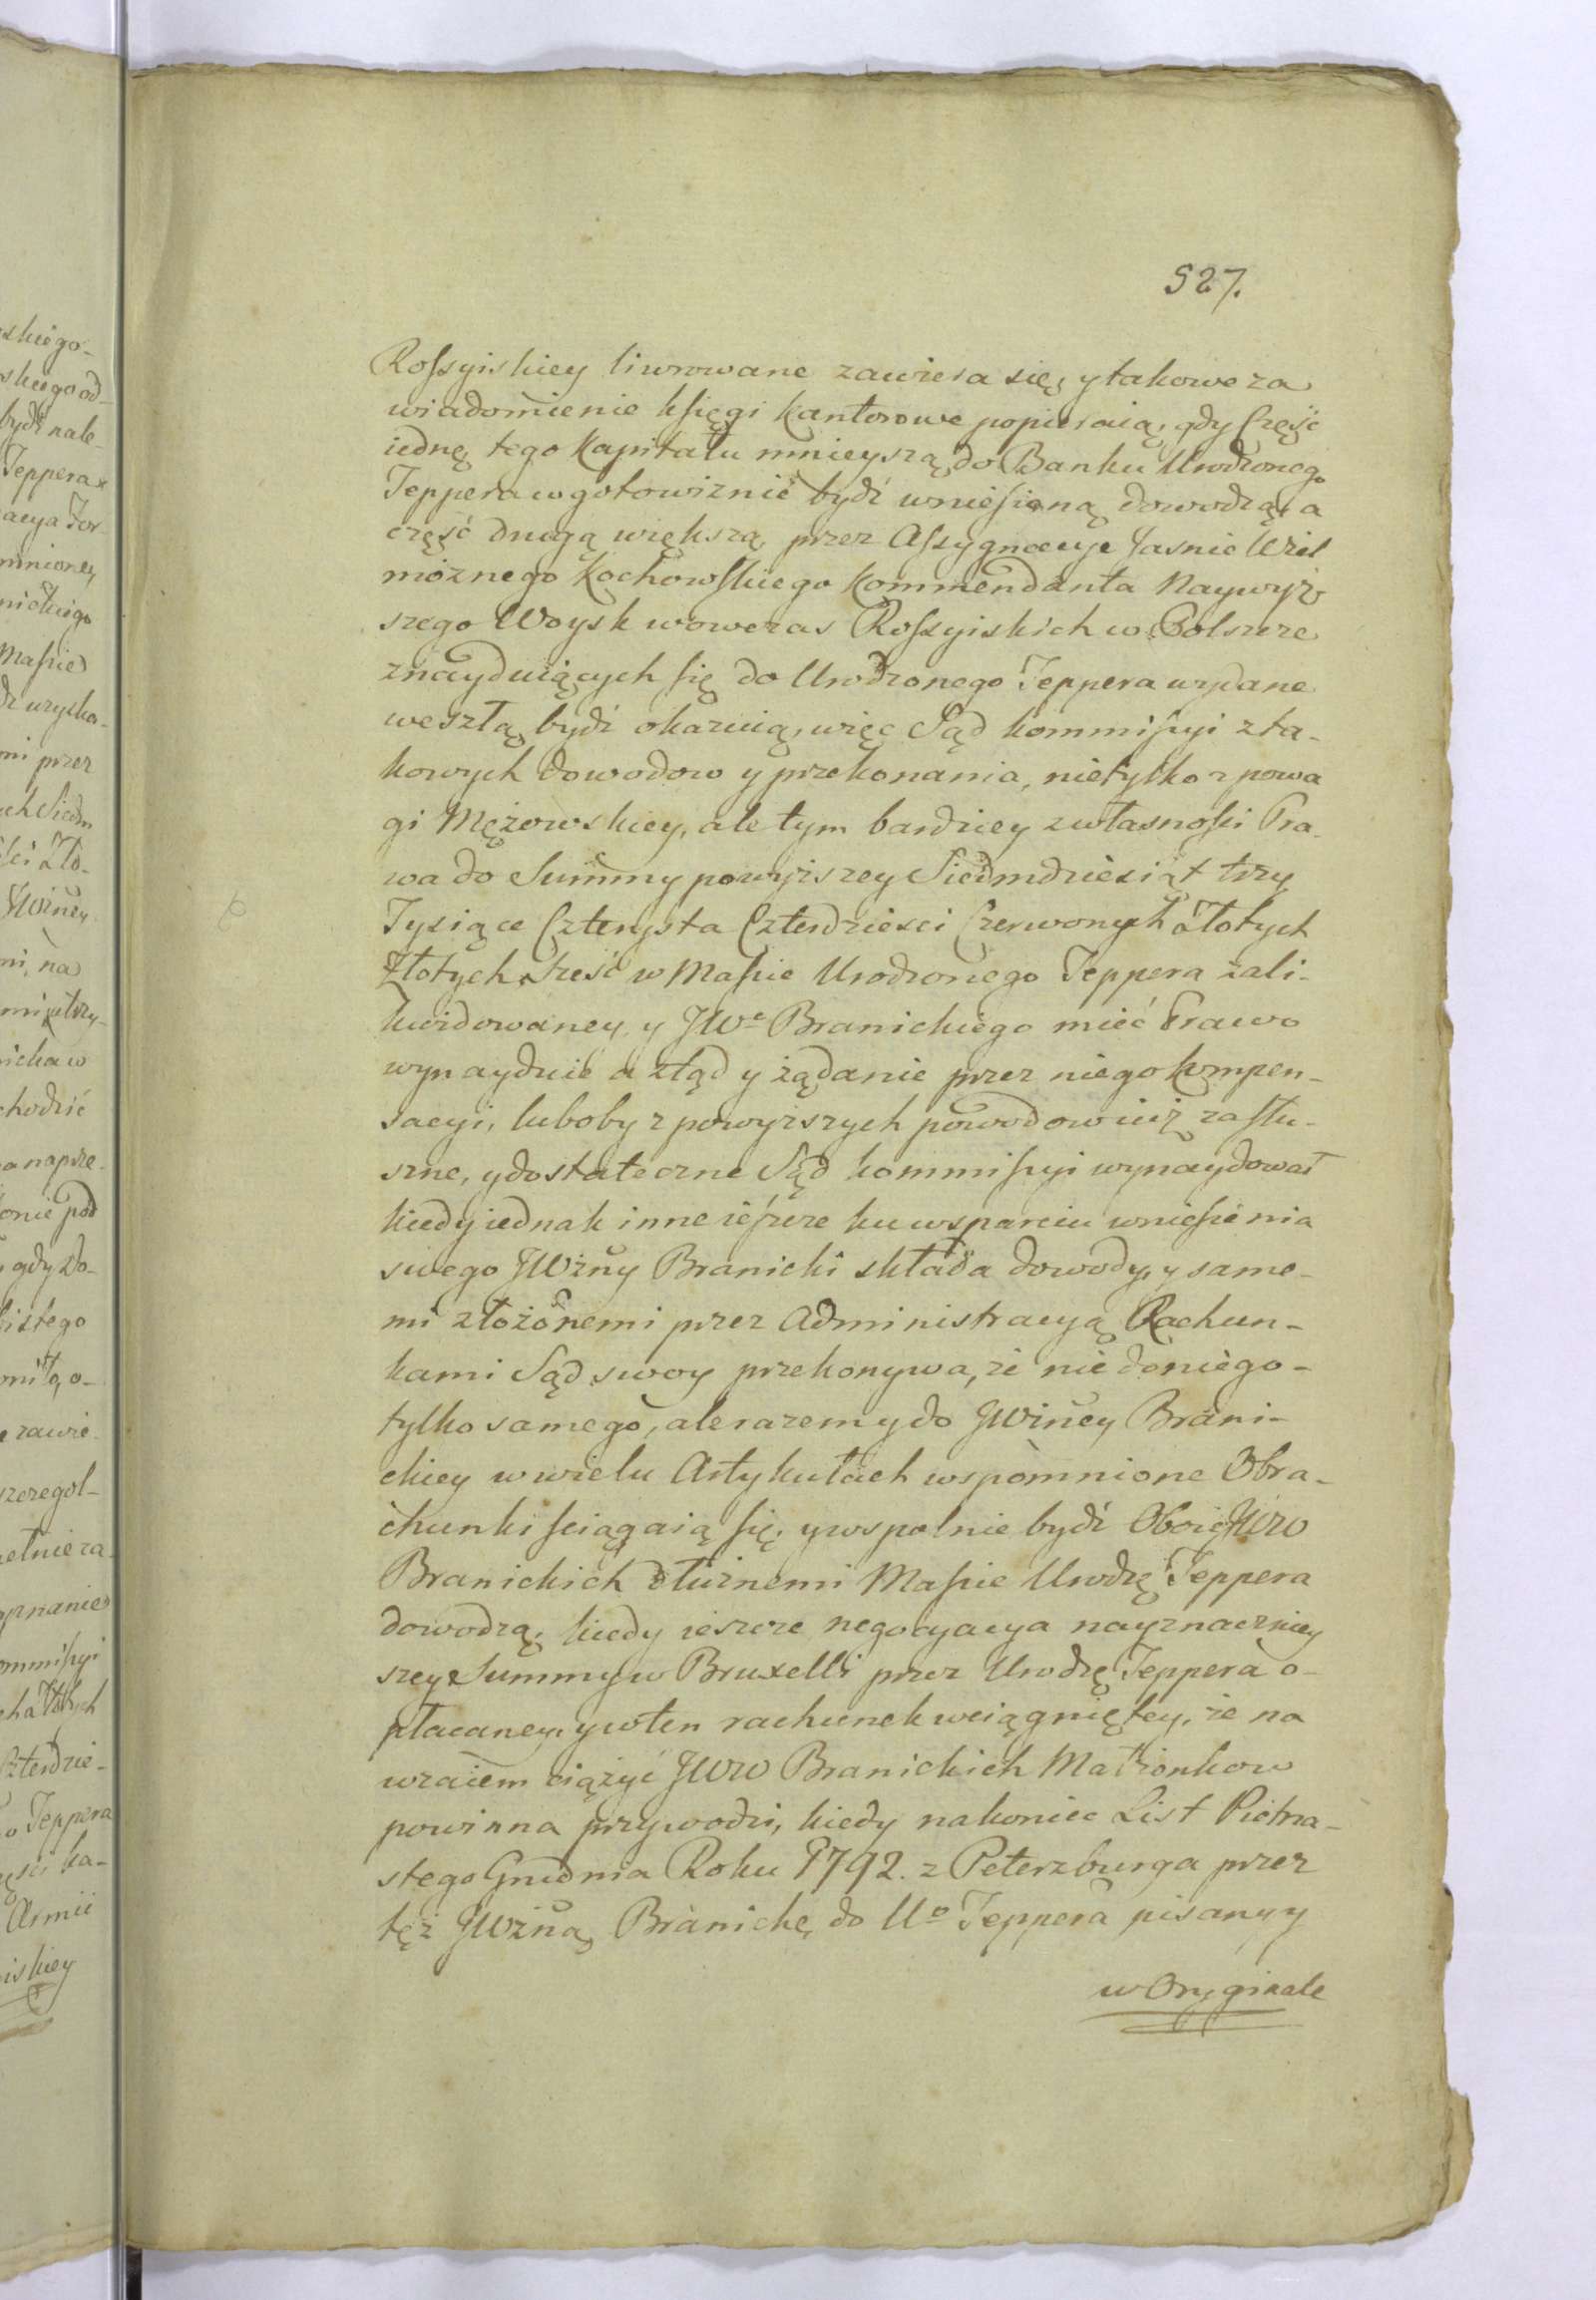 527.
Roſsyiskiey liwrowane zawiera się, y takowe za
wiadomienie kſięgi kantorowe popieraią, gdy Część
iednę tego kapitału mnieyszą do Banku Urodzonego
Teppera w gotowiznie bydź wnieſioną dowodzą, a
część drugą większą przez Aſsygnacye Jasnie Wiel
możnego Kochowſkiego Kommendanta Naywyż
szego Woysk wowczas Roſsyiskich w Polszcze
znayduiących ſię do Urodzonego Teppera wydane
weszłą bydź okazuią, więc Sąd kommiſsyi z ta-
kowych dowodow y przekonania, nietylko z powa
gi Mężowskiey, ale tym bardziey z własnoſci Pra-
wa do Summy powyższey Siedmdziesiąt trzy
Tysiące Czterysta Czterdziesci Czerwonych Złotych
Złotych sześć w Maſsie Urodzonego Teppera zali-
kwidowaney y JWo Branickiego mieć Prawo
wynayduie a ztąd y żądanie przez niego kompen-
sacyi, luboby z powyższych powodow iuż za słu-
szne, y dostateczne Sąd kommiſsyi wynaydował
kiedy iednak inne ieſzcze ku wsparciu wnieſienia
swego JWżny Branicki składa dowody, y same-
mi złożonemi przez Administracyą Rachun-
kami Sąd swoy przekonywa, że nie do niego-
tylko samego, ale razem y do JWżney Brani-
ckiey w wielu Artykułach wspomnione Obra-
chunki ſciągaią ſię, y wspolnie bydź Oboie JWW
Branickich dłużnemi Maſsie Urodzo Teppera
dowodzą, kiedy ieszcze negocyacya nayznaczniey
szey Summy w Bruxelli przez Urodzo Teppera o-
płacaney, y w ten rachunek wciągniętey, że na
wzaiem ciążyć JWW Branickich Małżonkow
powinna przywodzi, kiedy nakoniec List Piętna-
stego Grudnia Roku 1792. z Peterzburga przez
też JWżną Branickę do Uo Teppera pisany y
w Oryginale